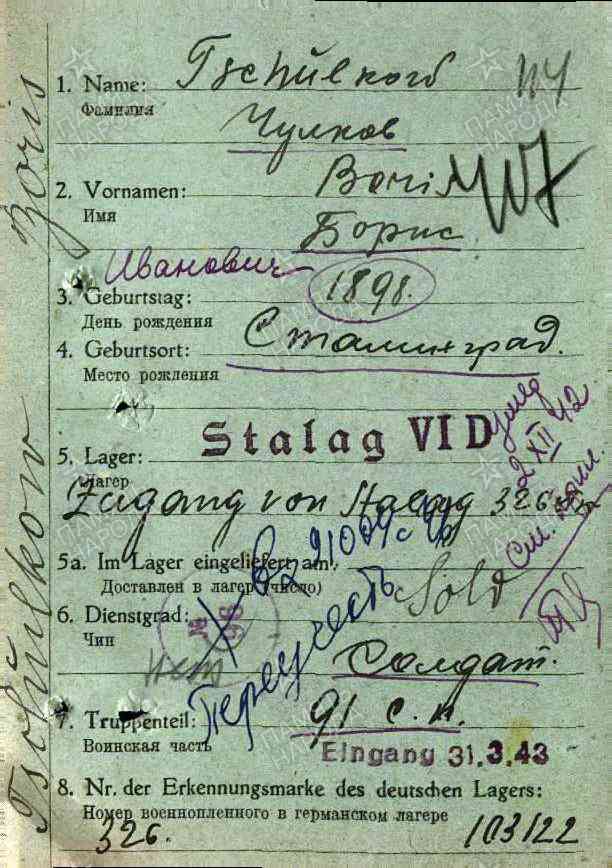 1. Name: Tschulkow
Фамилия
Чулков
2. Vornamen: Boris
Имя
Борис
Иванович
3. Geburtstag: 1898.
День рождения
4. Geburtsort: Сталинград.
Место рождения
Stalag VI D
5. Lager:
Лагер
Zugang von Stalag 326
5a. Im Lager eingeliefert am:
Доставлен в лагерь (число)
6. Dienstgrad: Sold
Чин
Солдат.
7. Truppenteil: 91 с.п.
Воинская часть
Eingang 31.3.43
8. Nr. der Erkennungsmarke des deutschen Lagers:
Номер военнопленного в германском лагере
326. 103122
Переучесть
2 XII 42
Tschulkow Boris